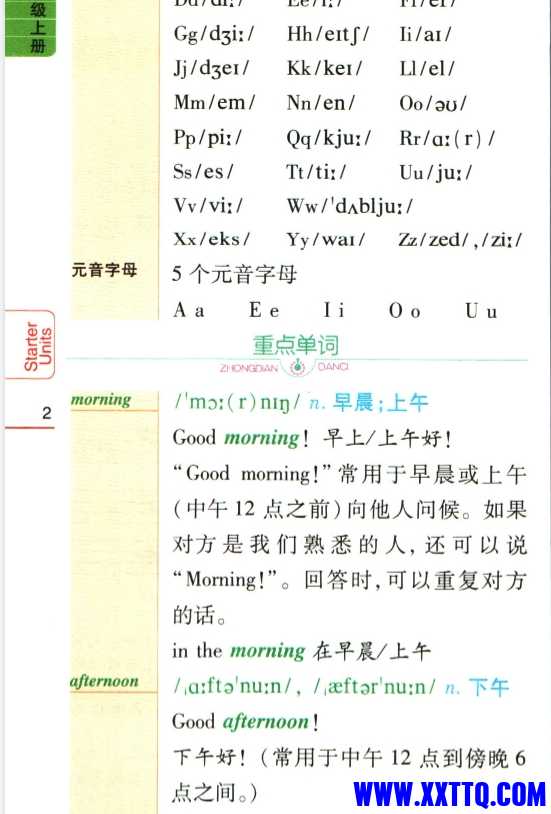 级上册
Gg/dʒiː/ Hh/eɪtʃ/ Ii/aɪ/
Jj/dʒeɪ/ Kk/keɪ/ Ll/el/
Mm/em/ Nn/en/ Oo/əʊ/
Pp/piː/ Qq/kjuː/ Rr/ɑː(r)/
Ss/es/ Tt/tiː/ Uu/juː/
Vv/viː/ Ww/ˈdʌbljuː/
Xx/eks/ Yy/waɪ/ Zz/zed/,/ziː/
元音字母 5个元音字母
Aa Ee Ii Oo Uu
Starter Units
2
重点单词
ZHONGDIAN DANCI
morning /ˈmɔː(r)nɪŋ/ n. 早晨;上午
Good morning! 早上/上午好!
“Good morning!”常用于早晨或上午
(中午12点之前)向他人问候。如果
对方是我们熟悉的人,还可以说
“Morning!”。回答时,可以重复对方
的话。
in the morning 在早晨/上午
afternoon /ˌɑːftəˈnuːn/, /ˌæftərˈnuːn/ n. 下午
Good afternoon!
下午好!(常用于中午12点到傍晚6
点之间。)
WWW.XXTTQ.COM